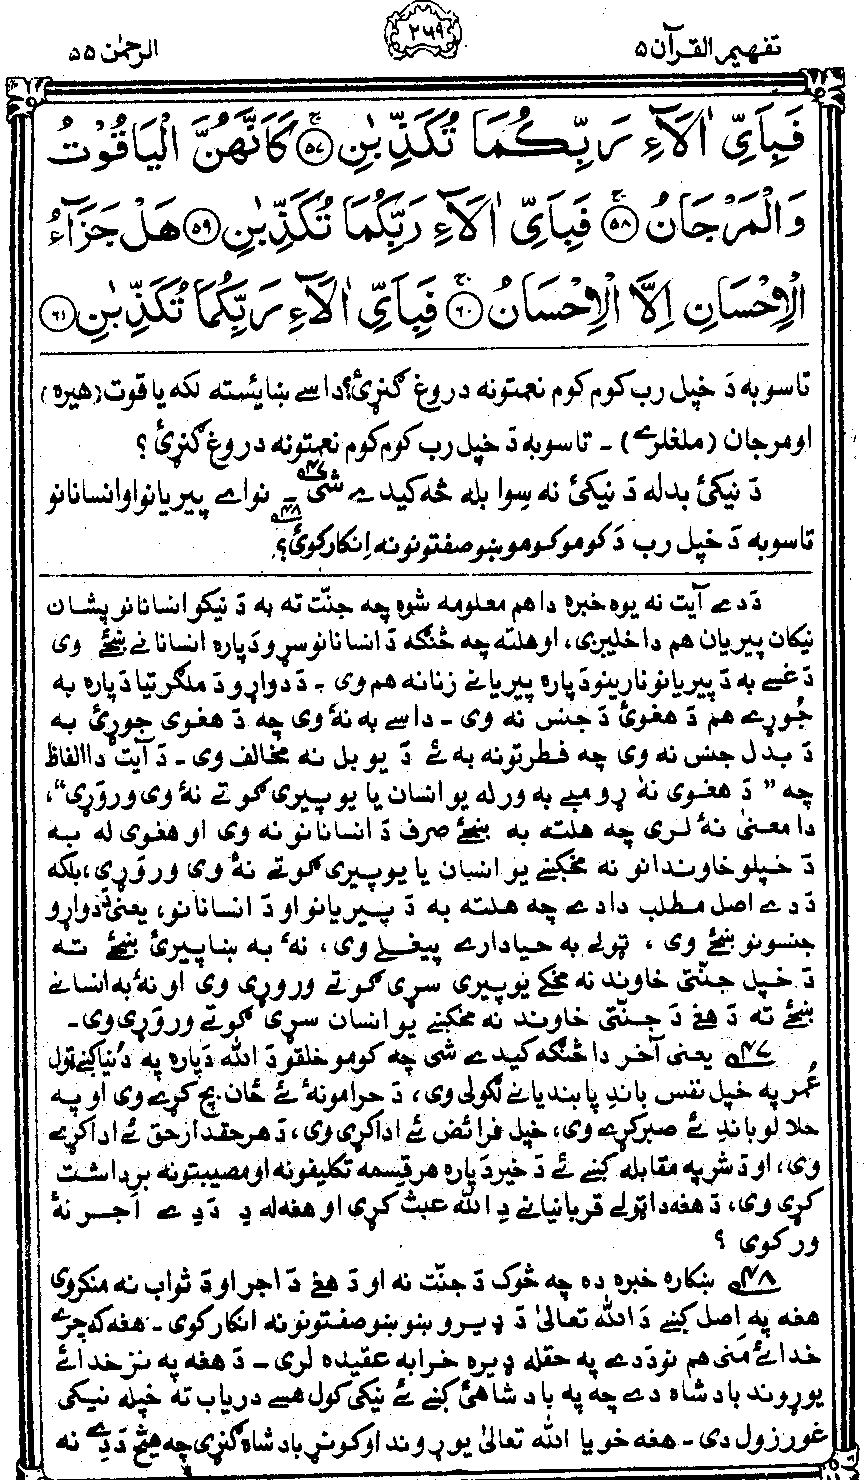 تفهیم القرآن ۵
۲۶۹
الرحمٰن ۵۵
فَبِاَيِّ اٰلَآءِ رَبِّكُمَا تُكَذِّبٰنِ ﴿۵۷﴾ كَاَنَّهُنَّ الْيَاقُوْتُ
وَالْمَرْجَانُ ﴿۵۸﴾ فَبِاَيِّ اٰلَآءِ رَبِّكُمَا تُكَذِّبٰنِ ﴿۵۹﴾ هَلْ جَزَآءُ
الْاِحْسَانِ اِلَّا الْاِحْسَانُ ﴿۶۰﴾ فَبِاَيِّ اٰلَآءِ رَبِّكُمَا تُكَذِّبٰنِ ﴿۶۱﴾
تاسو به دَ خپل رب کوم کوم نعمتونه دروغ ګنړئ؟ داسے ښایسته لکه یاقوت (هیره)
اومرجان (ملغلرے) ۔ تاسو به دَ خپل رب کوم کوم نعمتونه دروغ ګنړئ ؟
دَ نیکئ بدله دَ نیکئ نه سِوا بله څه کیدے شی۴۷ ۔ نو اے پیریانو او انسانانو
تاسو به دَ خپل رب دَ کومو کومو ښو صفتونو نه اِنکار کوئ۴۸؟
دَ دے آیت نه یوه خبره دا هم معلومه شوه چه جنّت ته به دَ نیکو انسانانو پشان
نیکان پیریان هم داخلیږی، او هلته چه څنګه دَ انسانانو سړو دَپاره انسانانے ښځے وی
دَغسے به دَ پیریانو نارینو دَپاره پیریانے زنانه هم وی ۔ دَ دواړو دَ ملګرتیا دَپاره به
جُوړے هم دَ هغوئ دَ جنس نه وی ۔ داسے به نۀ وی چه دَ هغوی جوړئ به
دَ بدل جنس نه وی چه فطرتونه به ئے دَ یو بل نه مخالف وی ۔ دَ آیت دا الفاظ
چه ” دَ هغوی نۀ ړومبے به ورله یو انسان یا یو پیری ګوتے نۀ وی وروړی“،
دا معنیٰ نۀ لری چه هلته به ښځے صرف دَ انسانانو نه وی او هغوی له به
دَ خپلو خاوندانو نه مخکښے یو انسان یا یو پیری ګوتے نۀ وی وروړی، بلکه
دَ دے اصل مطلب دا دے چه هلته به دَ پیریانو او دَ انسانانو، یعنی دَ دواړو
جنسونو ښځے وی ، ټولے به حیادارے پیغلے وی ، نۀ به ښاپیرئ ښځے ته
دَ خپل جنّتی خاوند نه مخکے یو پیری سړی ګوتے وروړی وی او نۀ به انسانے
ښځے ته دَ هغے دَ جنّتی خاوند نه مخکښے یو انسان سړی ګوتے وروړی وی۔
۴۷ یعنی آخر دا څنګه کیدے شی چه کومو خلقو دَ الله دَپاره په دُنیا کښے ټول
عُمر په خپل نفس باندِ پابندیانے لګولی وی، دَ حرامونۀ ئے ځان بچ کړے وی او په
حلالو باندِ ئے صبر کړے وی، خپل فرائض ئے ادا کړی وی، دَ هر حقدار حق ئے ادا کړے
وی، او دَ شر په مقابله کښے ئے دَ خیر دَپاره هر قِسمه تکلیفونه او مصیبتونه برداشت
کړی وی، دَ هغه دا ټولے قربانیانے دِ الله عبث کړی او هغه له دِ دَ دِے اجر نۀ
ورکوی ؟
۴۸ ښکاره خبره ده چه څوک دَ جنّت نه او دَ هغے دَ اجر او دَ ثواب نه منکر وی
هغه په اصل کښے دَ الله تعالیٰ دَ ډیرو ښو ښو صفتونو نه انکار کوی ۔ هغه که چرے
خدائے مَنی هم نو دَ دے په حقله ډیره خرابه عقیده لری ۔ دَ هغه په نزِ خدائے
یو ړوند بادشاه دے چه په بادشاهئ کښے ئے نیکی کول هسے دریاب ته خپله نیکی
غورزول دی ۔ هغه خو یا الله تعالیٰ یو ړوند او کوڼ بادشاه ګنړی چه هیڅ دَ دے نه